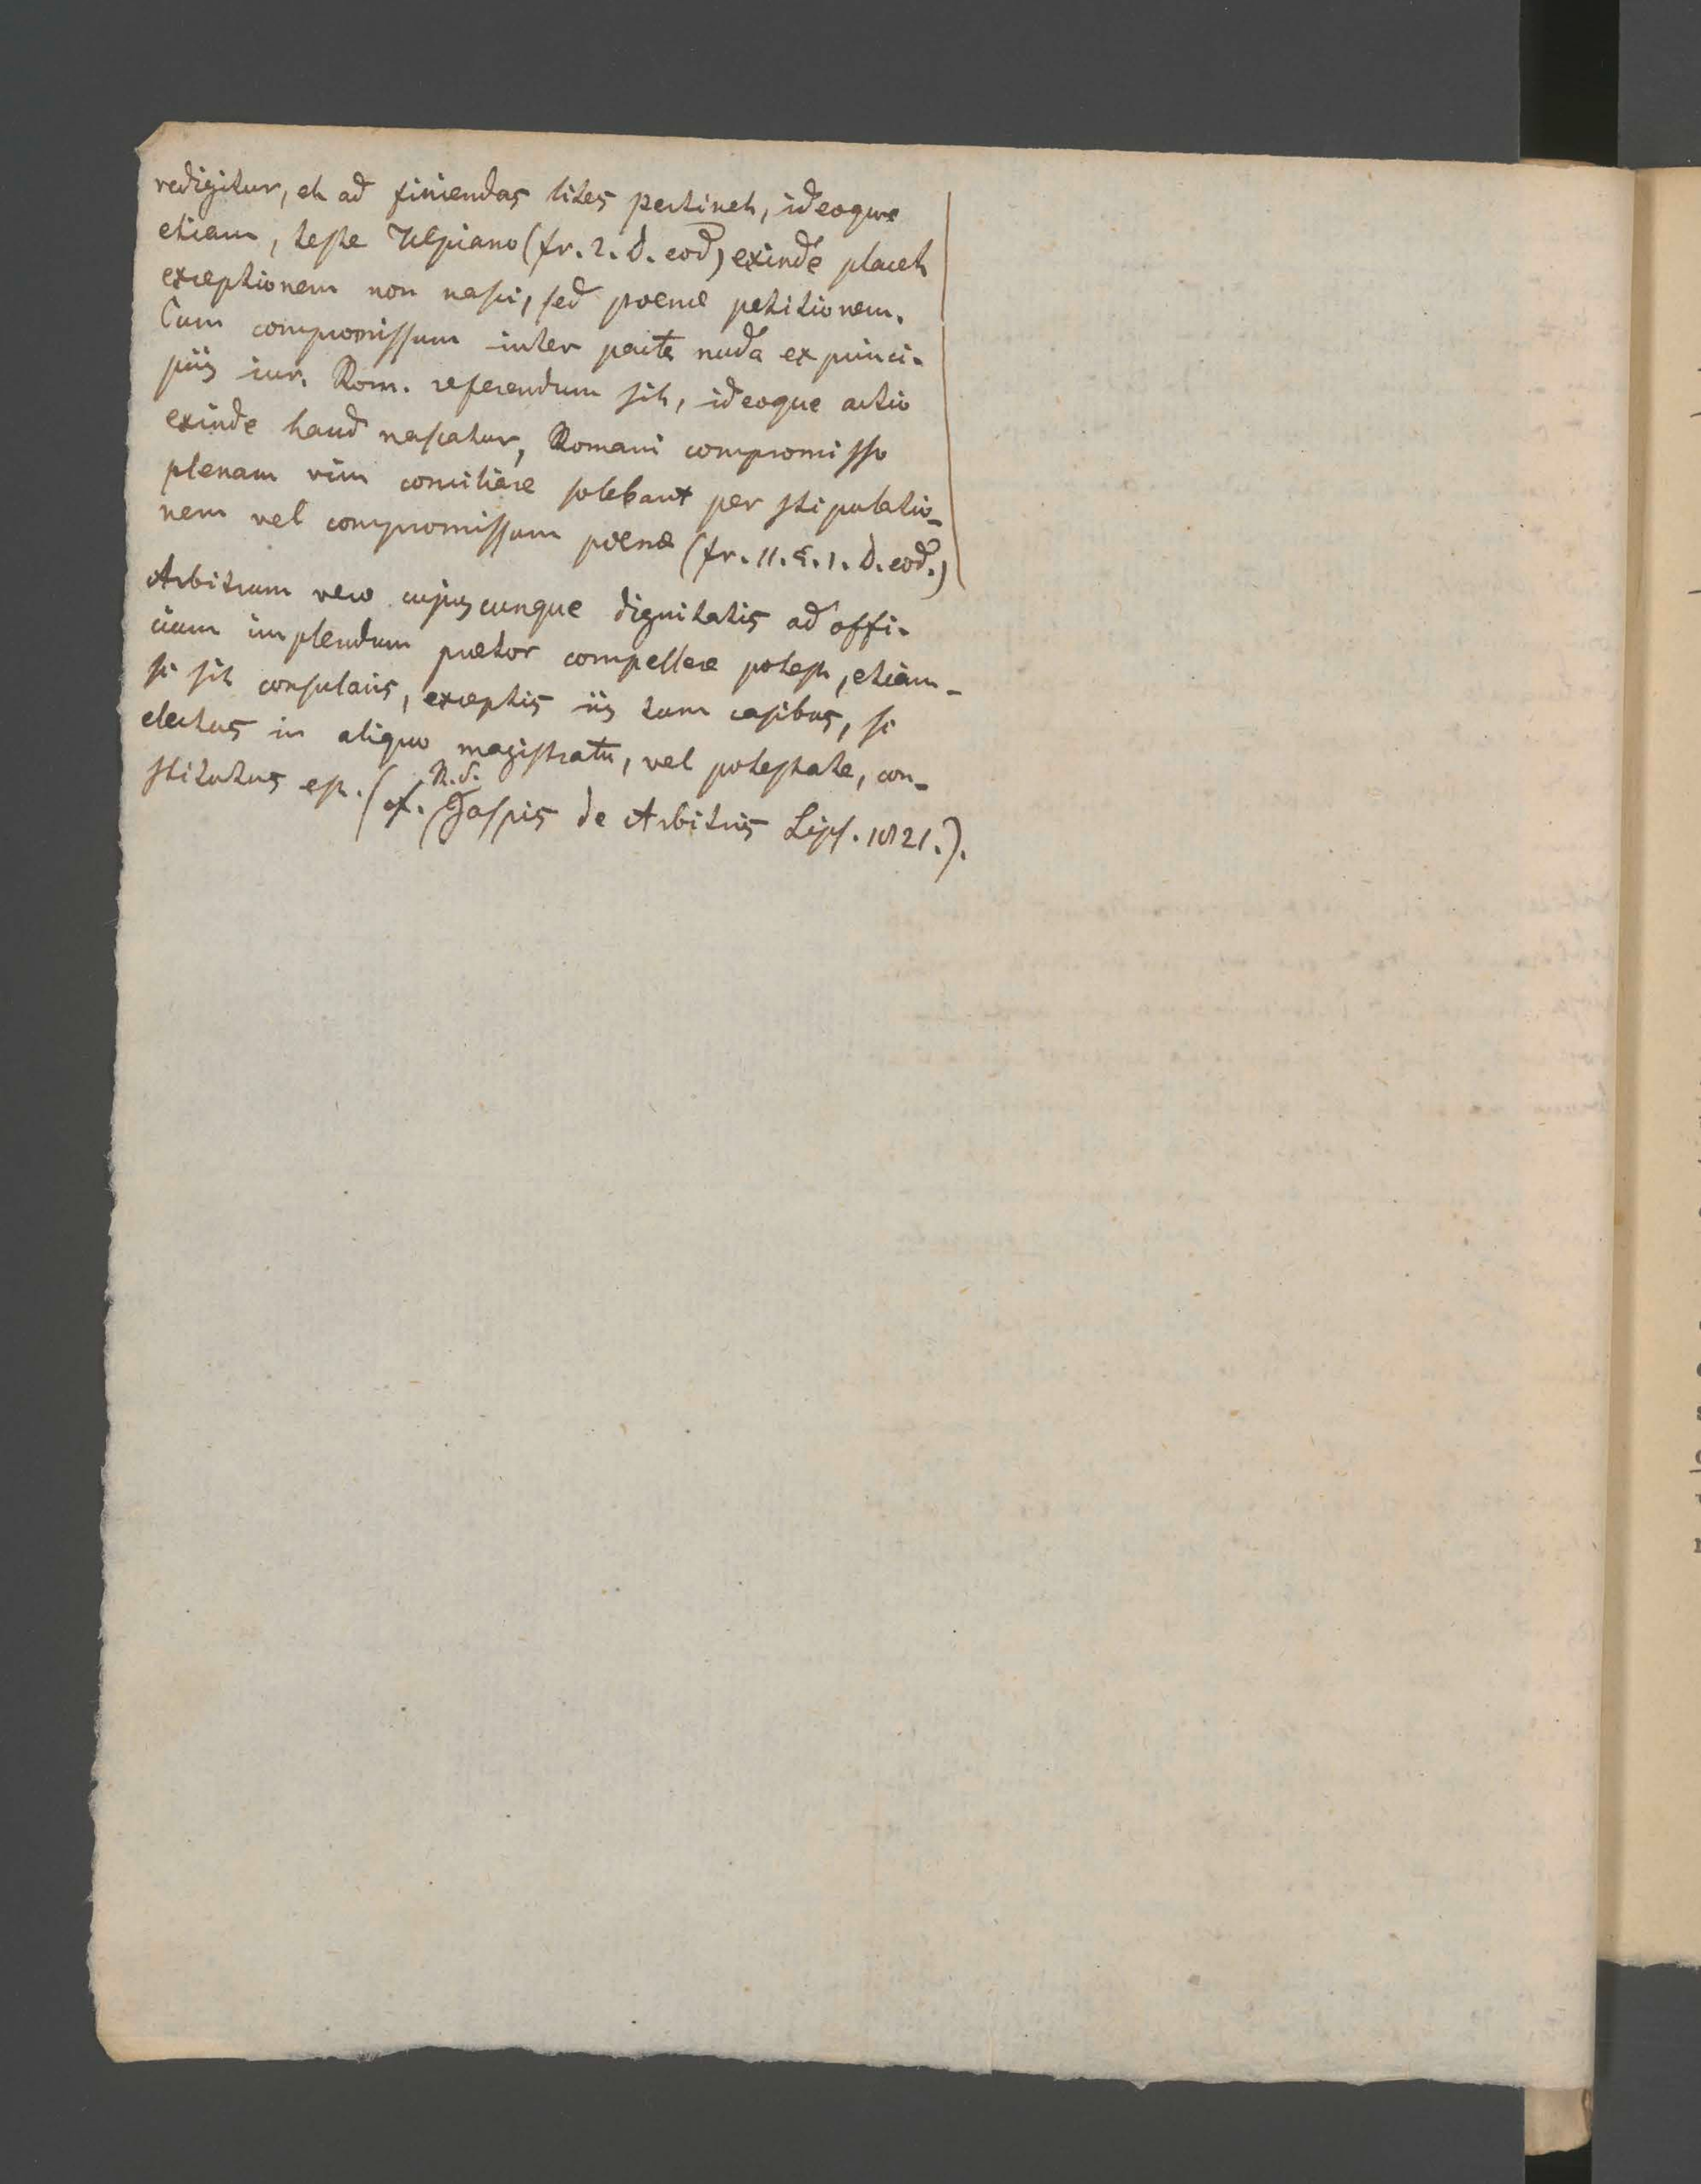 redigitur, et ad finiendas lites pertinet, ideoque
etiam, teste Ulpiano (fr. 2. D. eod) exinde placet
exceptionem non nasci, sed poenæ petitionem.
Cum compromissum inter pacta nuda ex princi-
piis iur. Rom. referendum sit, ideoque actio
exinde haud nascatur, Romani compromisso
plenam vim conciliare solebant per stipulatio-
nem vel compromissum poenæ (fr. 11. §. 1. D. eod.)
Arbitrum vero cujuscunque dignitatis ad offi-
cium implendum prætor compellere potest, etiam-
si sit consularis, exceptis iis tum casibus, si
electus in aliquo magistratu, vel potestate, con-
stitutus est. (cf. Gaspis de Arbitris Lips. 1821.).